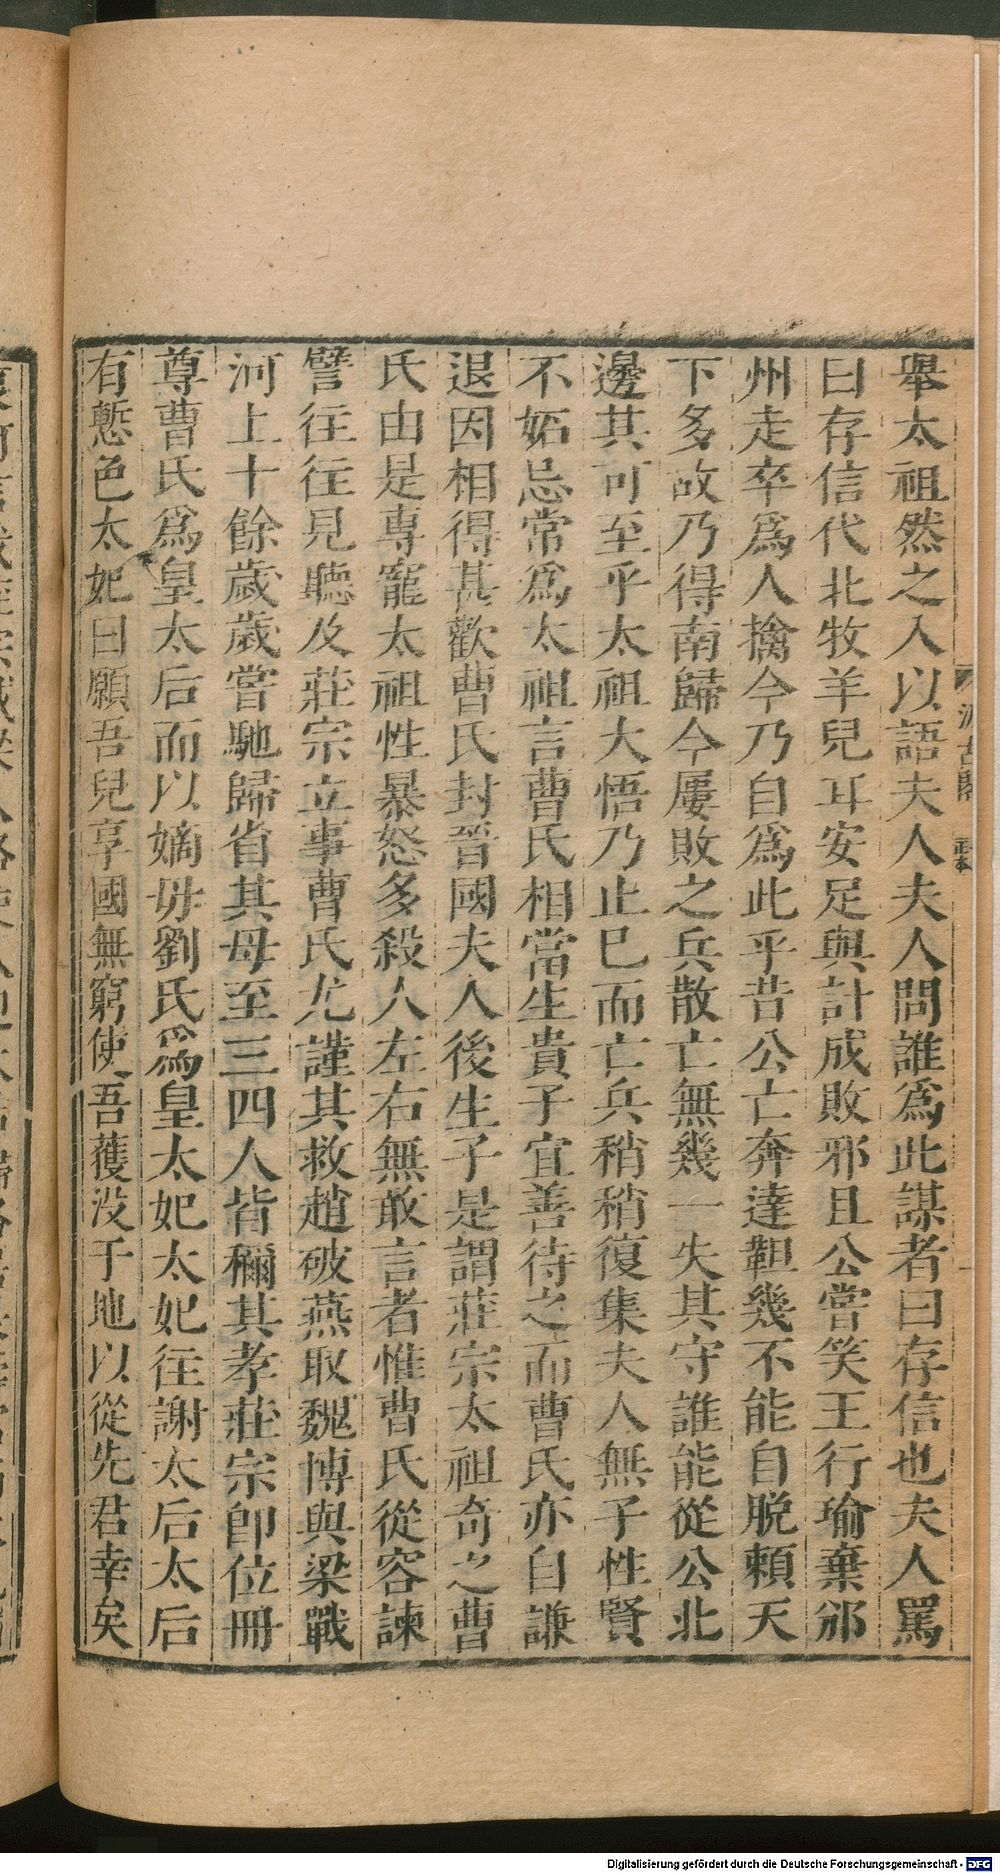 舉太祖然之入以語夫人夫人問誰爲此謀者曰存信也夫人罵
曰存信代北牧羊兒耳安足與計成敗邪且公嘗笑王行瑜棄邠
州走卒爲人擒今乃自爲此乎昔公亡奔達靼幾不能自脱賴天
下多故乃得南歸今屢敗之兵散亡無幾一失其守誰能從公北
邊其可至乎太祖大悟乃止已而亡兵稍稍復集夫人無子性賢
不妬忌常爲太祖言曹氏相當生貴子宜善待之而曹氏亦自謙
退因相得甚歡曹氏封晉國夫人後生子是謂莊宗太祖奇之曹
氏由是專寵太祖性暴怒多殺人左右無敢言者惟曹氏從容諫
譬往往見聽及莊宗立事曹氏尤謹其救趙破燕取魏博與梁戰
河上十餘歲歲嘗馳歸省其母至三四人皆稱其孝莊宗卽位冊
尊曹氏爲皇太后而以嫡毋劉氏爲皇太妃太妃往謝太后太后
有慙色太妃曰願吾兒享國無窮使吾獲没于地以從先君幸矣
Digitalisierung gefördert durch die Deutsche Forschungsgemeinschaft - DFG